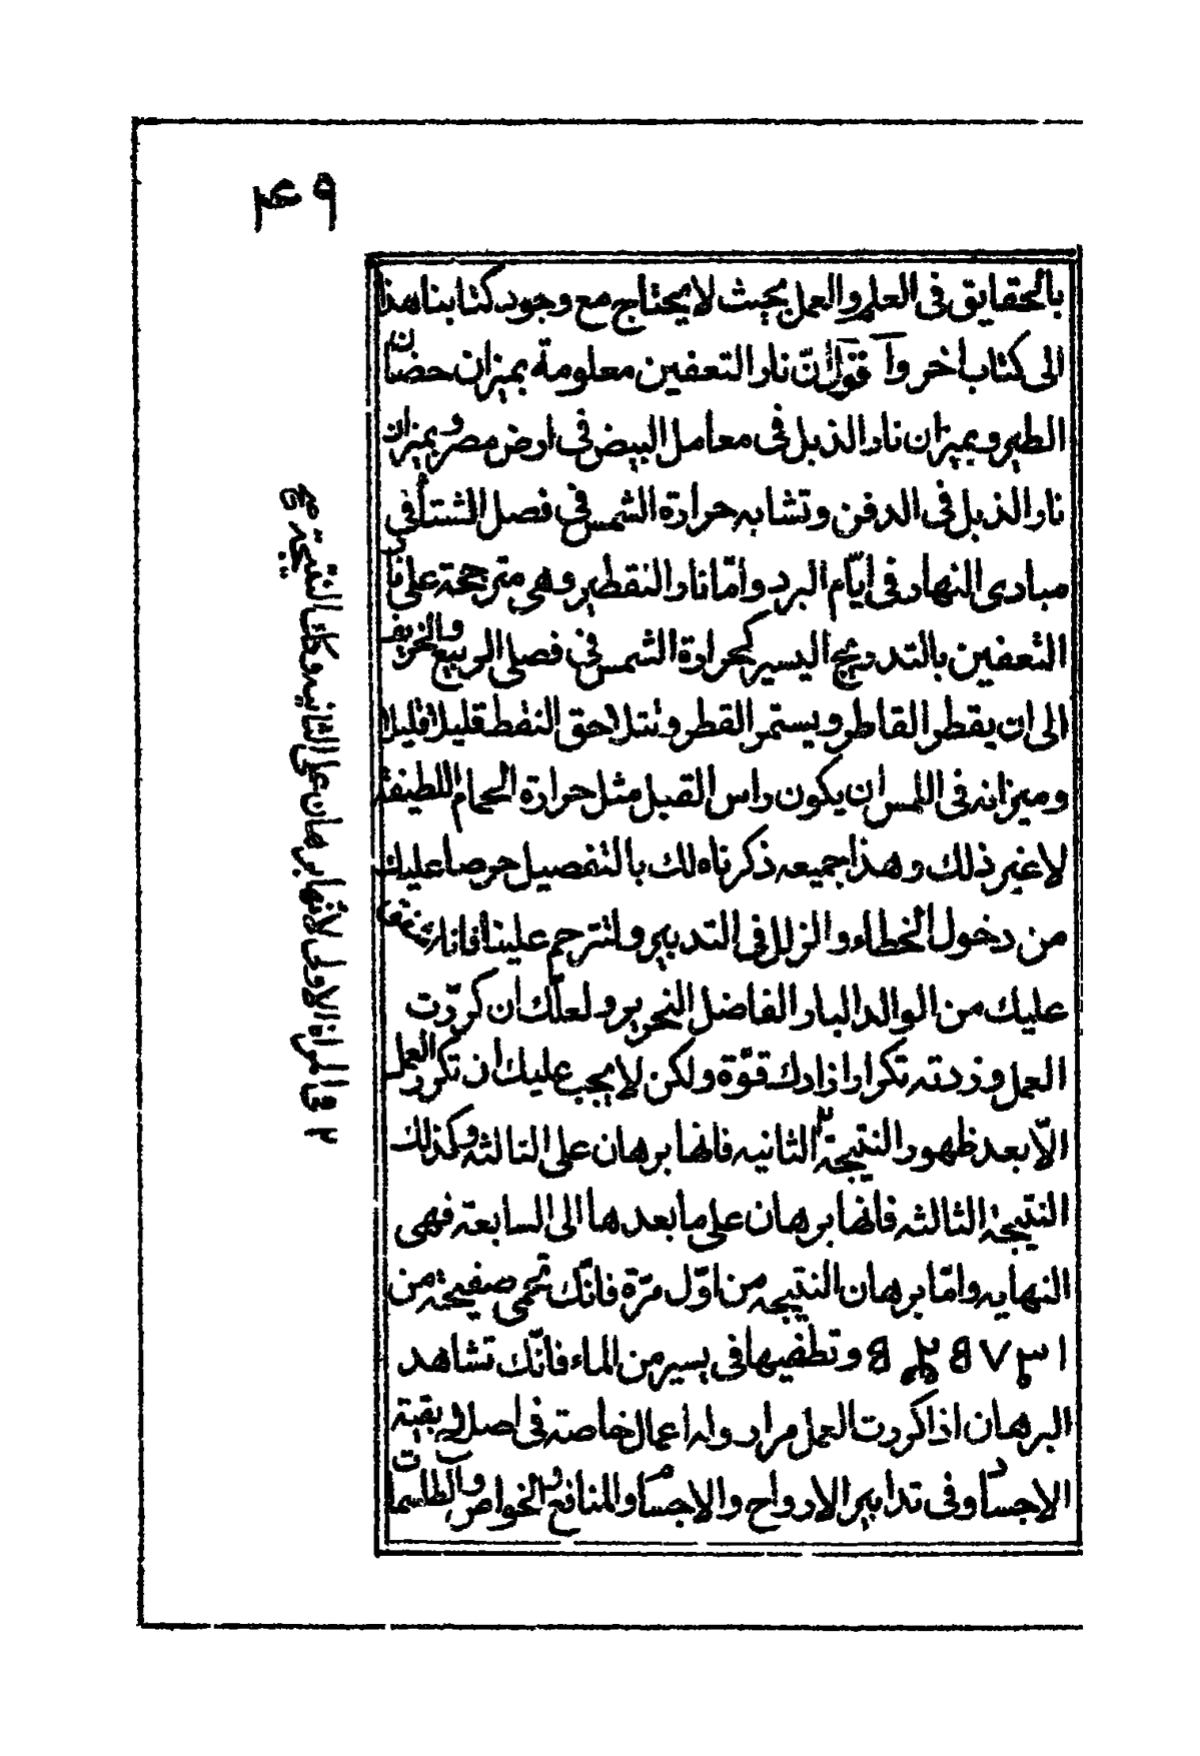 ۴۹
بالحقايق فى العلم والعمل بحيث لا يحتاج مع وجود كتابنا هذا
الى كتاب اخر وآقول انّ نار التعفين معلومة بميزان حضان
الطير وبميزان نار الذبل فى معامل البيض فى ارض مصر وبميزان
نار الذبل فى الدفن وتشابه حرارة الشمس فى فصل الشتاء فى
مبادى النهار فى ايّام البرد وامّا نار التقطير وهى مترجحة على نار
التعفين بالتدريج اليسير كحرارة الشمس فى فصلى الربيع والخريف
الى ان يقطر القاطر ويستمر القطر وتتلاحق النقط قليلا قليلا
وميزانه فى اللمس ان يكون راس القبل مثل حرارة الحمام اللطيفة
لا غير ذلك وهذا جميعه ذكرناه لك بالتفصيل حرصا عليك
من دخول الخطاء والزلل فى التدبير ولتترحم علينا فانا شفقة
عليك من الوالد البار الفاضل النحرير ولعلّك ان كرّرت
العمل وزدته تكرارا زادك قوّة ولكن لا يجب عليك ان تكرر العمل
الّا بعد ظهور النتيجة ٢ الثانيه فانها برهان على الثالثه وكذلك
النتيجة الثالثه فانها برهان على ما بعدها الى السابعة فهى
النهايه وامّا برهان النتيجه من اوّل مرّة فانّك تحمى صفيحة من
وتطفيها فى يسير من الماء فانّك تشاهد
البرهان اذا كررت العمل مرار وله اعمال خاصته فى اصلاح بقية
الاجساد وفى تدابير الارواح والاجسام والمنافع والخواص والطلسمات
٢ وفى المراة الاولى لانها برهان على الثانيه وكذا النتيجة صح